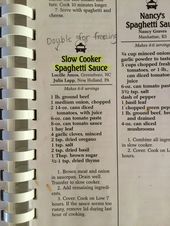 ture. Cook 10 minutes longer.
7. Serve with spaghetti and
cheese.
Double for freezing
Slow Cooker
Spaghetti Sauce
Lucille Amos, Greensboro, NC
Julia Lapp, New Holland, PA
Makes 6-8 servings
1 lb. ground beef
1 medium onion, chopped
2 14-oz. cans diced
tomatoes, with juice
6-oz. can tomato paste
8-oz. can tomato sauce
1 bay leaf
4 garlic cloves, minced
2 tsp. dried oregano
1 tsp. salt
2 tsp. dried basil
1 Tbsp. brown sugar
½-1 tsp. dried thyme
1. Brown meat and onion
in saucepan. Drain well. Transfer to slow cooker.
2. Add remaining ingredients.
3. Cover. Cook on Low 7
hours. If the sauce seems too
runny, remove lid during last
hour of cooking.
Nancy's
Spaghetti Sauce
Nancy Graves
Manhattan, KS
Makes 4-6 servings
¼ cup minced onion
garlic powder to taste
3 cups chopped fresh
tomatoes, or 1 lb.,
can diced tomatoes
with juice
6-oz. can tomato paste
3½ tsp. salt
dash of pepper
1 basil leaf
1 chopped green pepper
1 lb. ground beef, browned
and drained
4-oz. can sliced
mushrooms
1. Combine all